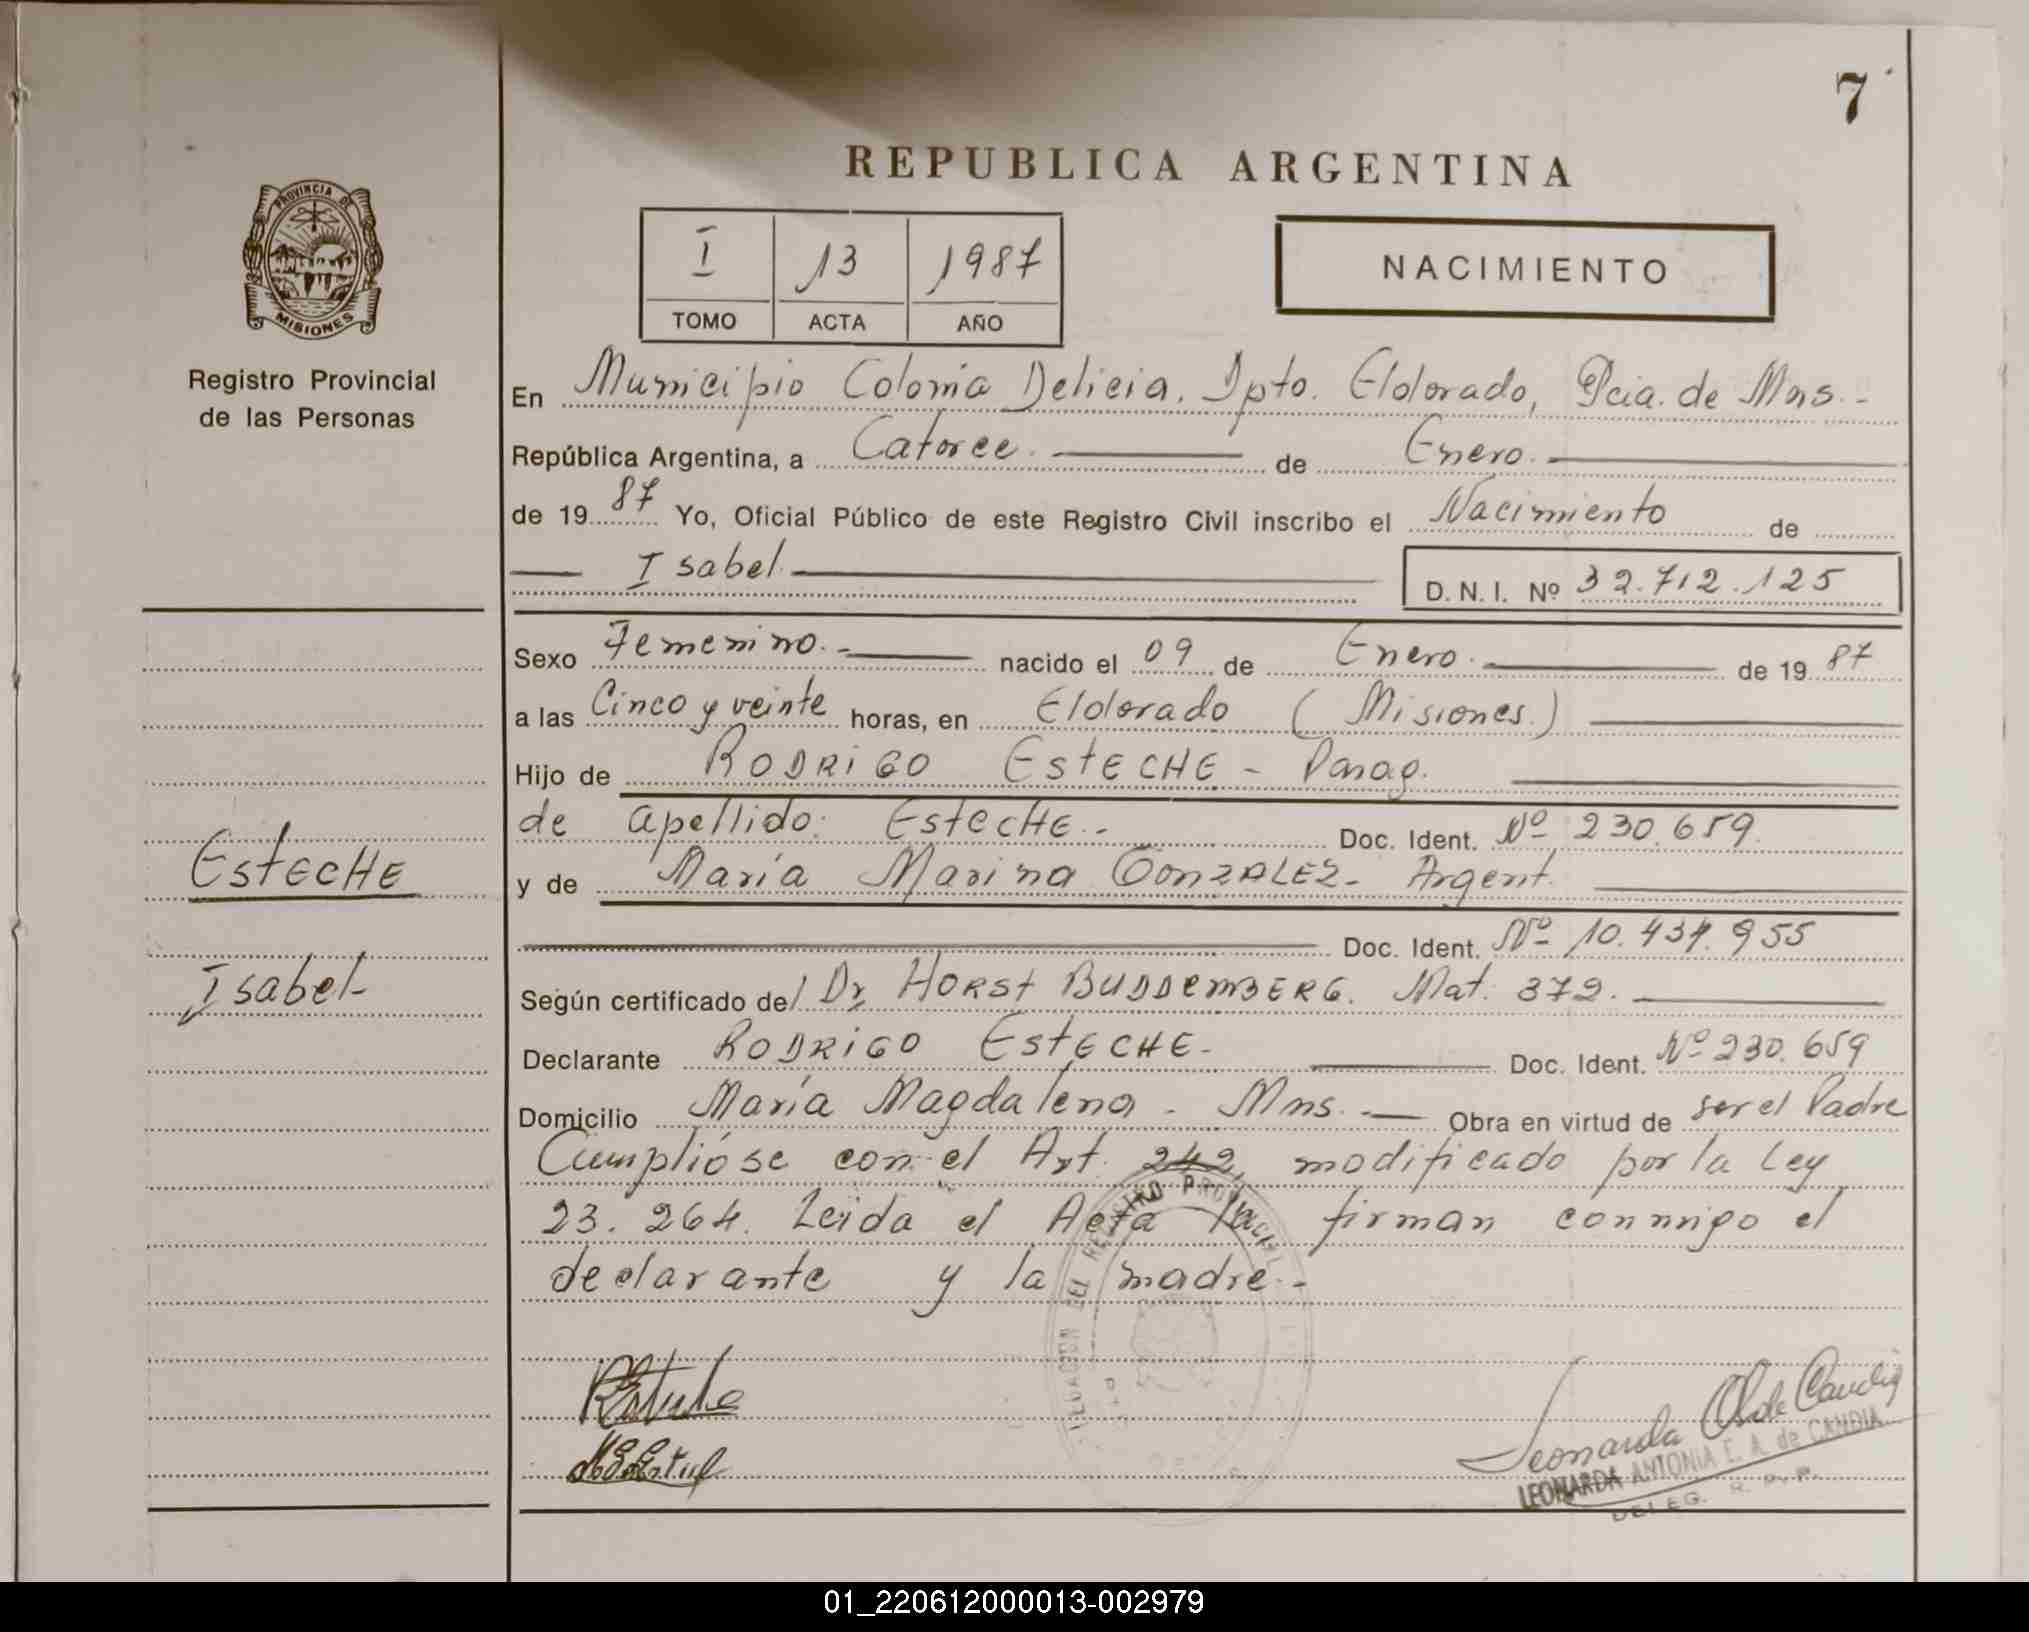 7
REPUBLICA ARGENTINA
PROVINCIA DE
MISIONES
Registro Provincial
de las Personas
I 13 1987
TOMO ACTA AÑO
NACIMIENTO
En Municipio Colonia Delicia. Dpto. Eldorado, Pcia. de Mns.-
República Argentina, a Catorce. de Enero.
de 19 87 Yo, Oficial Público de este Registro Civil inscribo el Nacimiento de
Isabel.
D. N. I. Nº 32.712.125
Sexo Femenino.- nacido el 09 de Enero. de 19 87
a las Cinco y veinte horas, en Eldorado (Misiones.)
Hijo de RODRIGO ESTECHE - Parag.
de apellido: ESTECHE.- Doc. Ident. Nº 230.659.
y de María Marina GONZALEZ- Argent.
Doc. Ident. Nº 10.434.955
Según certificado del Dr HORST BUDDEMBERG. Mat. 372.
Declarante RODRIGO ESTECHE- Doc. Ident. Nº 230.659
Domicilio María Magdalena - Mns.- Obra en virtud de ser el Padre
Cumplióse con el Art. 242, modificado por la Ley
23.264. Leida el Acta la firman conmigo el
declarante y la madre.-
ESTECHE
Isabel-
REGISTRO PROVINCIAL
Leonarda de Candia
LEONARDA ANTONIA E. A. de CANDIA
DELEG. R. P. P.
01_220612000013-002979